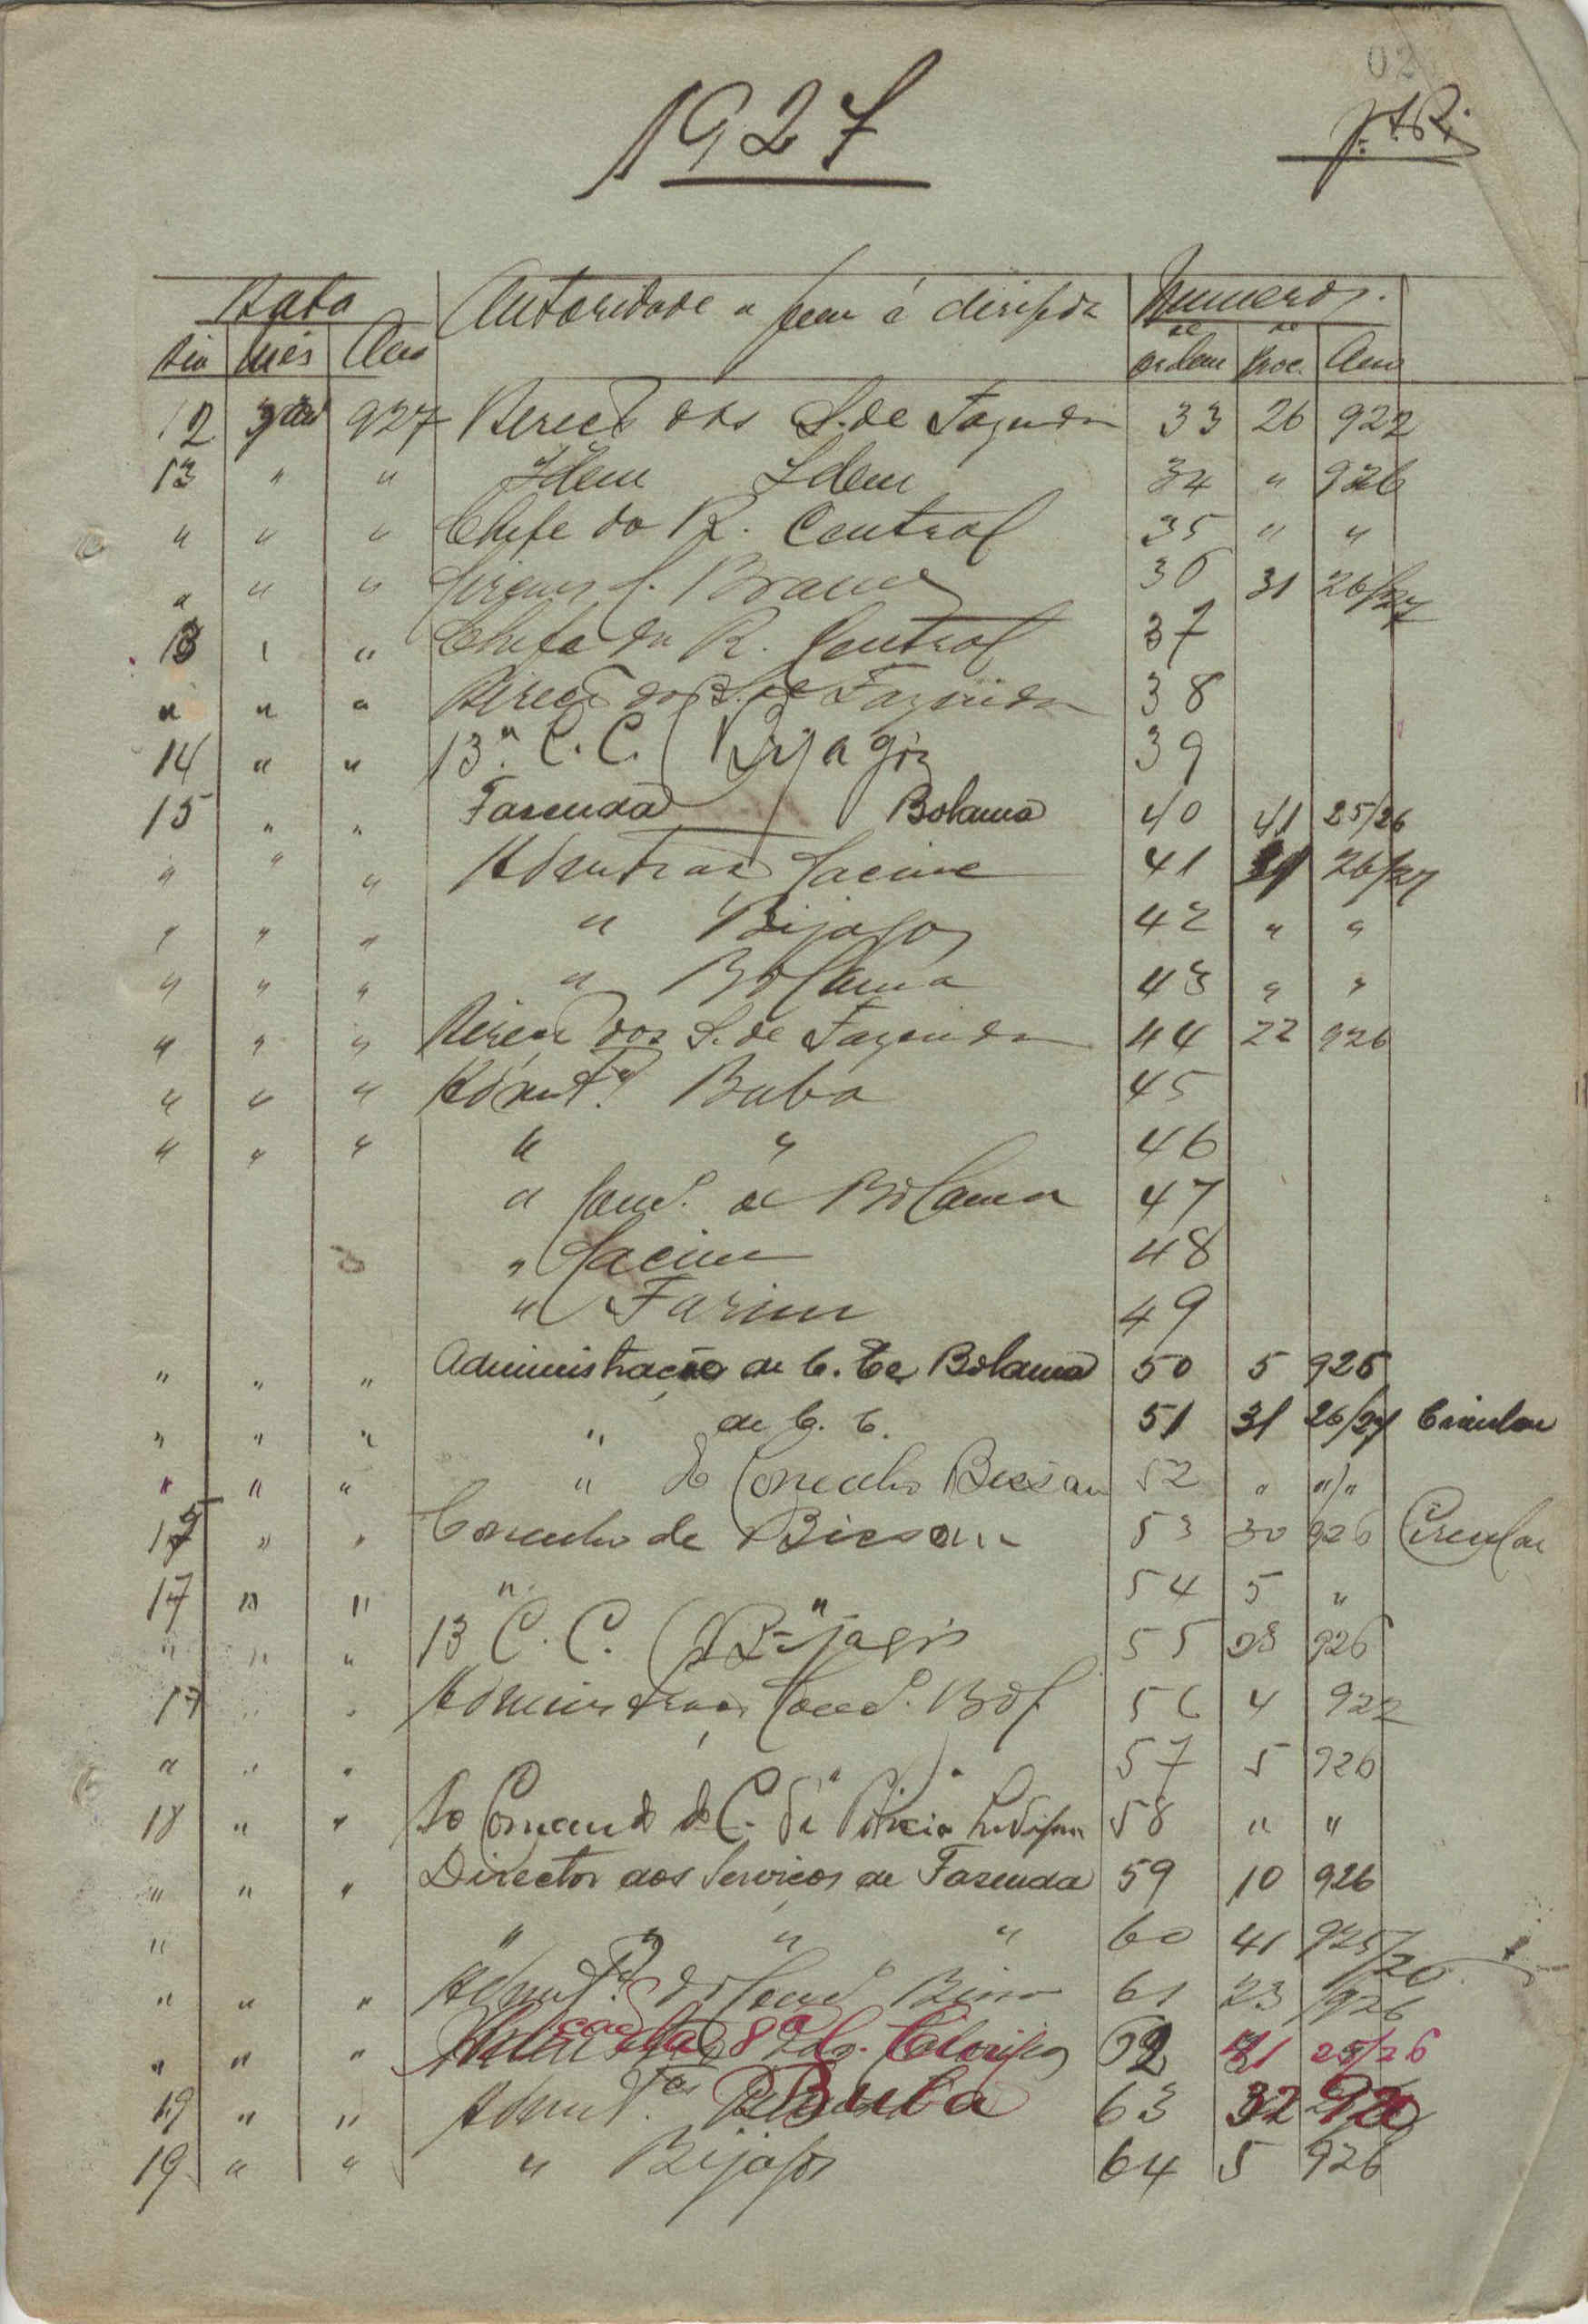 02
1927
Data Autoridade a quem é dirigida Numeros.
Dia Mês Ano de ordem de Proc. Ano
12 927 Direcç dos S. de Fazenda 33 26 922
13 " " Idem Idem 34 " 926
" " " Chefe da R. Central 35 " "
" " " 36 31 26/27
13 " " Chefe da R. Central 37
" " " Direcç dos S. de Fazenda 38
14 " " 13ª C. C. (Bijagóz 39
15 " " Fazenda Bolama 40 41 25/26
" " " Admnistrac Cacine 41 31 26/27
" " " " Bijagoz 42 " "
" " " " Bolama 43 " "
" " " Direcç dos S. de Fazenda 44 22 926
" " " Admnt. Buba 45
" " " " " 46
" Conc. de Bolama 47
" Cacine 48
" Farim 49
" " " Administração de C. de Bolama 50 5 926
" " " " de C. C. 51 31 26/27 Circular
" " " " do Concelho Bissau 52 " "/"
" " Concelho de Bissau 53 30 926 Circular
17 " " " " 54 5 "
" " " 13 C. C. (Bijagós 55 23 926
17 " " Administrac Conc. Bol 56 4 922
" " " " " 57 5 926
18 " " Ao Comando do C. de Policia Indigena 58 " "
" " " Director dos Serviços de Fazenda 59 10 926
" " " " " 60 41 925/26
" " " Admnt. do Conc. 61 23 926
" " " 8ª 62 31 25/26
19 " " Admnt. Buba 63 32 926
19 " " " Bijagos 64 5 926